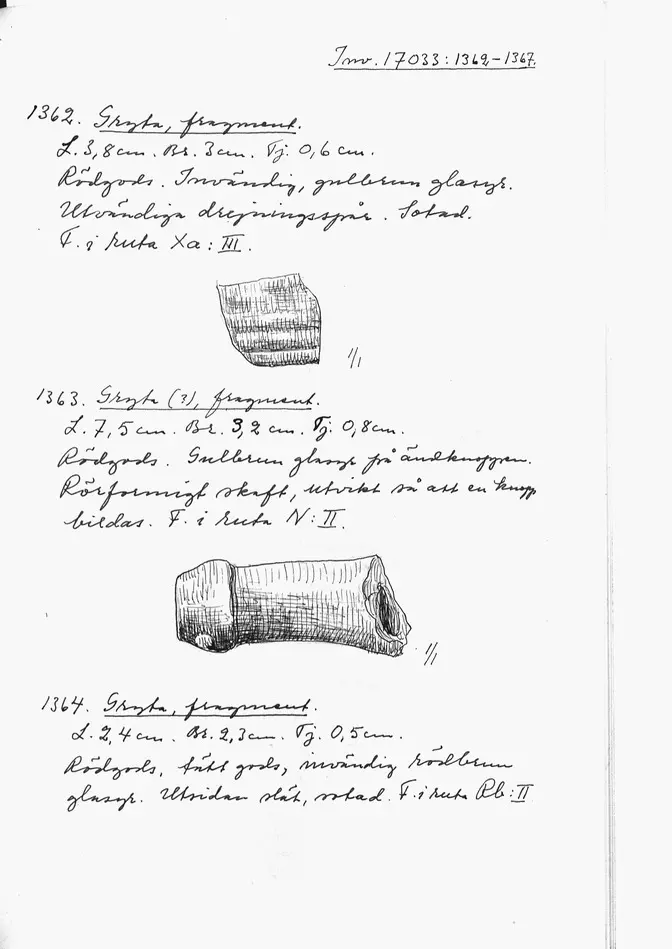 Inv. 17033:1362-1367.
1362. Gryta, fragment.
L. 3,8 cm. Br. 3 cm. Tj. 0,6 cm.
Rödgods. Invändig, gulbrun glasyr.
Utvändiga drejningsspår. Sotad.
F. i ruta Xa: III.
1/1
1363. Gryta (?), fragment.
L. 7,5 cm. Br. 3,2 cm. Tj. 0,8 cm.
Rödgods. Gulbrun glasyr på ändknoppen.
Rörformigt skaft, utvikt så att en knopp
bildas. F. i ruta N: II.
1/1
1364. Gryta, fragment.
L. 2,4 cm. Br. 2,3 cm. Tj. 0,5 cm.
Rödgods, tätt gods, invändig rödbrun
glasyr. Utsidan slät, sotad. F. i ruta Rb: II